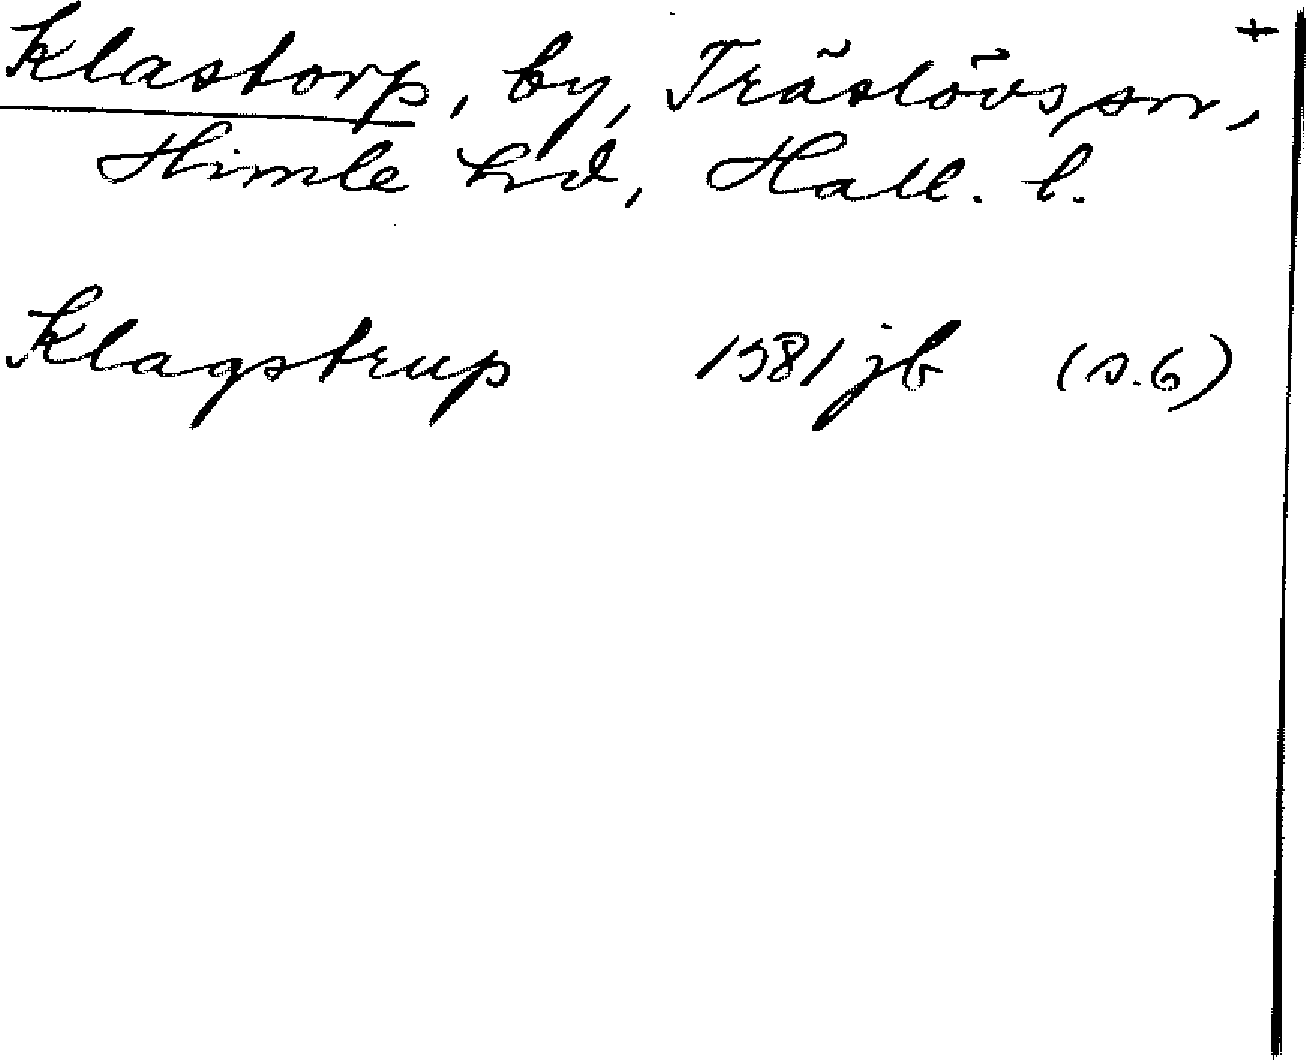 Klastorp, by, Träslövs sn, +
Himle hd, Hall. l.
Klagstrup 1581 jb (s. 6)